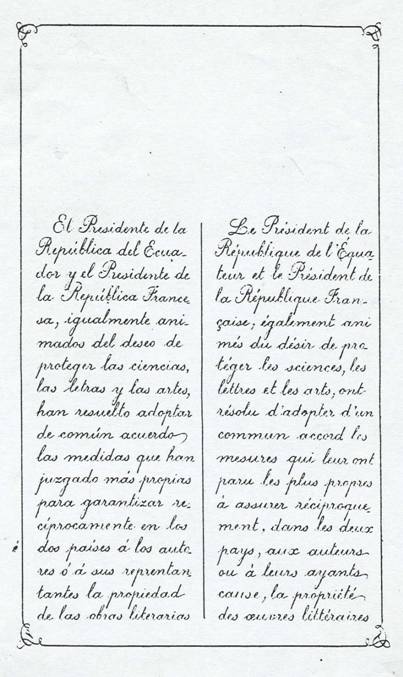 El Presidente de la
República del Ecua-
dor y el Presidente de
la República France
sa, igualmente ani-
mados del deseo de
proteger las ciencias,
las letras y las artes,
han resuelto adoptar
de común acuerdo
las medidas que han
juzgado más propias
para garantizar re-
cíprocamente en los
dos países á los auto
res ó á sus reprentan
tantes la propiedad
de las obras literarias
Le Président de la
République de l'Équa
teur et le Président de
la République Fran-
çaise, également ani
més du désir de pro
téger les sciences, les
lettres et les arts, ont
résolu d'adopter d'un
commun accord les
mesures qui leur ont
paru les plus propres
à assurer réciproque-
ment, dans les deux
pays, aux auteurs
ou à leurs ayants
cause, la propriété
des œuvres littéraires